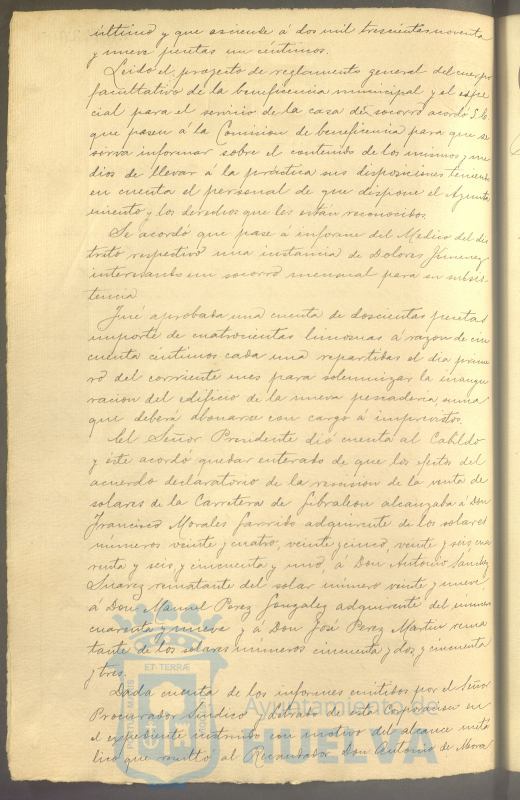 último y que asciende á dos mil trescientas noventa
y nueve pesetas un céntimos.
Leido el proyecto de reglamento general del cuerpo
facultativo de la beneficencia municipal y el espe
cial para el servicio de la casa de socorro acordó S. E.
que pasen á la Comision de beneficencia para que se
sirva informar sobre el contenido de los mismos y me
dios de llevar á la práctica sus disposiciones teniendo
en cuenta el personal de que dispone el Ayunta
miento y los derechos que les están reconocidos.
Se acordó que pase á informe del Medico del dis
trito respectivo una instancia de Dolores Jimenez
interesando un socorro mensual para su subsis
tencia.
Fué aprobada una cuenta de doscientas pesetas
importe de cuatrocientas limosnas á razon de cin
cuenta céntimos cada una repartidas el dia prime
ro del corriente mes para solemnizar la inaugu
racion del edificio de la nueva pescaderia suma
que deberá abonarse con cargo á imprevistos.
El Señor Presidente dió cuenta al Cabildo
y éste acordó quedar enterado de que los efectos del
acuerdo declaratorio de la rescision de la venta de
solares de la Carretera de Gibraleon alcanzaba á Don
Francisco Morales Garrido adquirente de los solares
números veinte y cuatro, veinte y cinco, veinte y seis, cua
renta y seis y cincuenta y uno, á Don Antonio Sanchez
Suarez rematante del solar número veinte y nueve
á Don Manuel Perez Gonzalez adquirente del número
cuarenta y nueve y á Don José Perez Martin rema
tante de los solares números cincuenta y dos y cincuenta
y tres.
Dada cuenta de los informes emitidos por el Señor
Procurador Síndico y letrado de esta Corporacion en
el expediente instruido con motivo del alcance metá
lico que resultó al Recaudador Don Antonio de Mora
ET TERRÆ
PORTUS MARIS
Ayuntamiento de
HUELVA